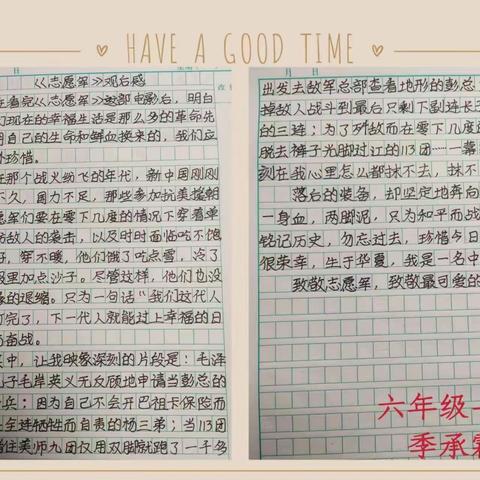 HAVE A GOOD TIME
日
《志愿军》观后感
在看完《志愿军》这部电影后，明白
们现在的幸福生活是那么多的革命先
用自己的生命和鲜血换来的，我们应
珍惜。
在那个战火纷飞的年代，新中国刚刚
不久，国力不足，那些参加抗美援朝
愿军们要在零下几度的情况下穿着单
防敌人的袭击，以及时时面临吃不饱
穿不暖，他们饿了吃点雪，冷了
里加点沙子。尽管这样，他们也没
的退缩。只为一句话"我们这代人
打完了，下一代人就能过上幸福的日
而奋战。
中，让我映象深刻的片段是：毛泽
儿子毛岸英义无反顾地申请当彭总的
兵；因为自己不会开巴祖卡保险而
全连牺牲而自责的杨三弟；当113团
着住美师九团仅用双脚就跑了一千多
日
出发去敌军总部查看地形的彭总
掉敌人战斗到最后只剩下副连长
的三连；为了歼敌而在零下几度
脱去裤子光脚过江的113团……一幕
刻在我心里怎么都抹不去，抹不
落后的装备，却坚定地奔向
一身血，两脚泥，只为和平而战
铭记历史，勿忘过去，珍惜今日
很荣幸，生于华夏，我是一名中
致敬志愿军，致敬最可爱的
六年级
季承霖